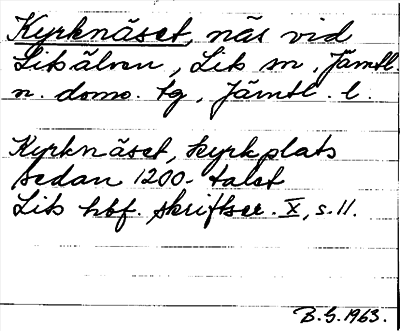 Kyrknäset, näs vid
Litsälven, Lits sn, Jämtl.
n. doms. tg, Jämtl. l.
Kyrknäset, kyrkplats
sedan 1200-talet
Lits hbf. skriftser. X, s. 11.
B.G. 1963.